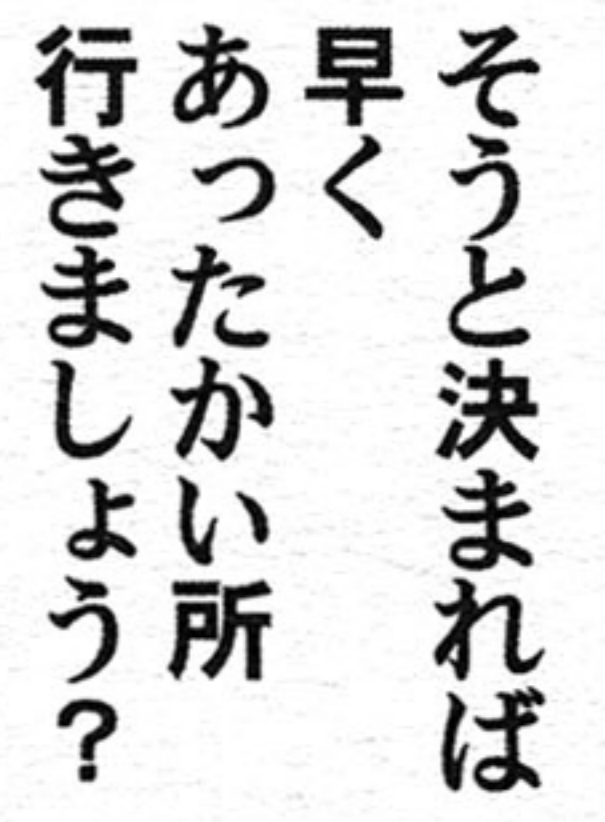 そうと決まれば
早く
あったかい所
行きましょう?